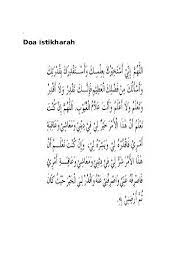 Doa istikharah
اللَّهُمَّ إِنِّي أَسْتَخِيرُكَ بِعِلْمِكَ وَأَسْتَقْدِرُكَ بِقُدْرَتِكَ
وَأَسْأَلُكَ مِنْ فَضْلِكَ الْعَظِيمِ فَإِنَّكَ تَقْدِرُ وَلَا أَقْدِرُ
وَتَعْلَمُ وَلَا أَعْلَمُ وَأَنْتَ عَلَّامُ الْغُيُوبِ. اللَّهُمَّ إِنْ كُنْتَ
تَعْلَمُ أَنَّ هَذَا الْأَمْرَ خَيْرٌ لِي فِي دِينِي وَمَعَاشِي وَعَاقِبَةِ
أَمْرِي فَاقْدُرْهُ لِي وَيَسِّرْهُ لِي، وَإِنْ كُنْتَ تَعْلَمُ أَنَّ
هَذَا الْأَمْرَ شَرٌّ لِي فِي دِينِي وَمَعَاشِي وَعَاقِبَةِ أَمْرِي
فَاصْرِفْهُ عَنِّي وَاصْرِفْنِي عَنْهُ وَاقْدُرْ لِيَ الْخَيْرَ حَيْثُ كَانَ
ثُمَّ أَرْضِنِي بِهِ.